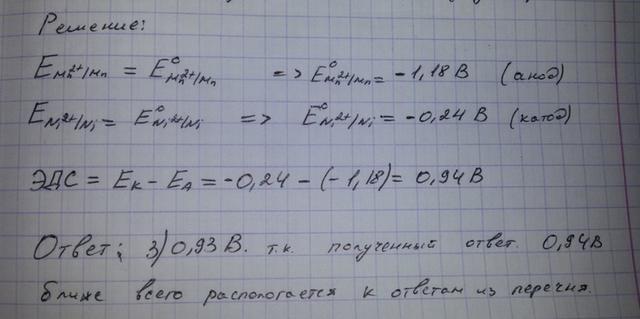 Решение:
E Mn²⁺/Mn = E⁰ Mn²⁺/Mn => E⁰ Mn²⁺/Mn = -1,18 В (анод)
E Ni²⁺/Ni = E⁰ Ni²⁺/Ni => E⁰ Ni²⁺/Ni = -0,24 В (катод)
ЭДС = Eк - EА = -0,24 - (-1,18) = 0,94 В
Ответ: 3) 0,93 В. т.к. полученный ответ 0,94 В
ближе всего распологается к ответам из перечня.